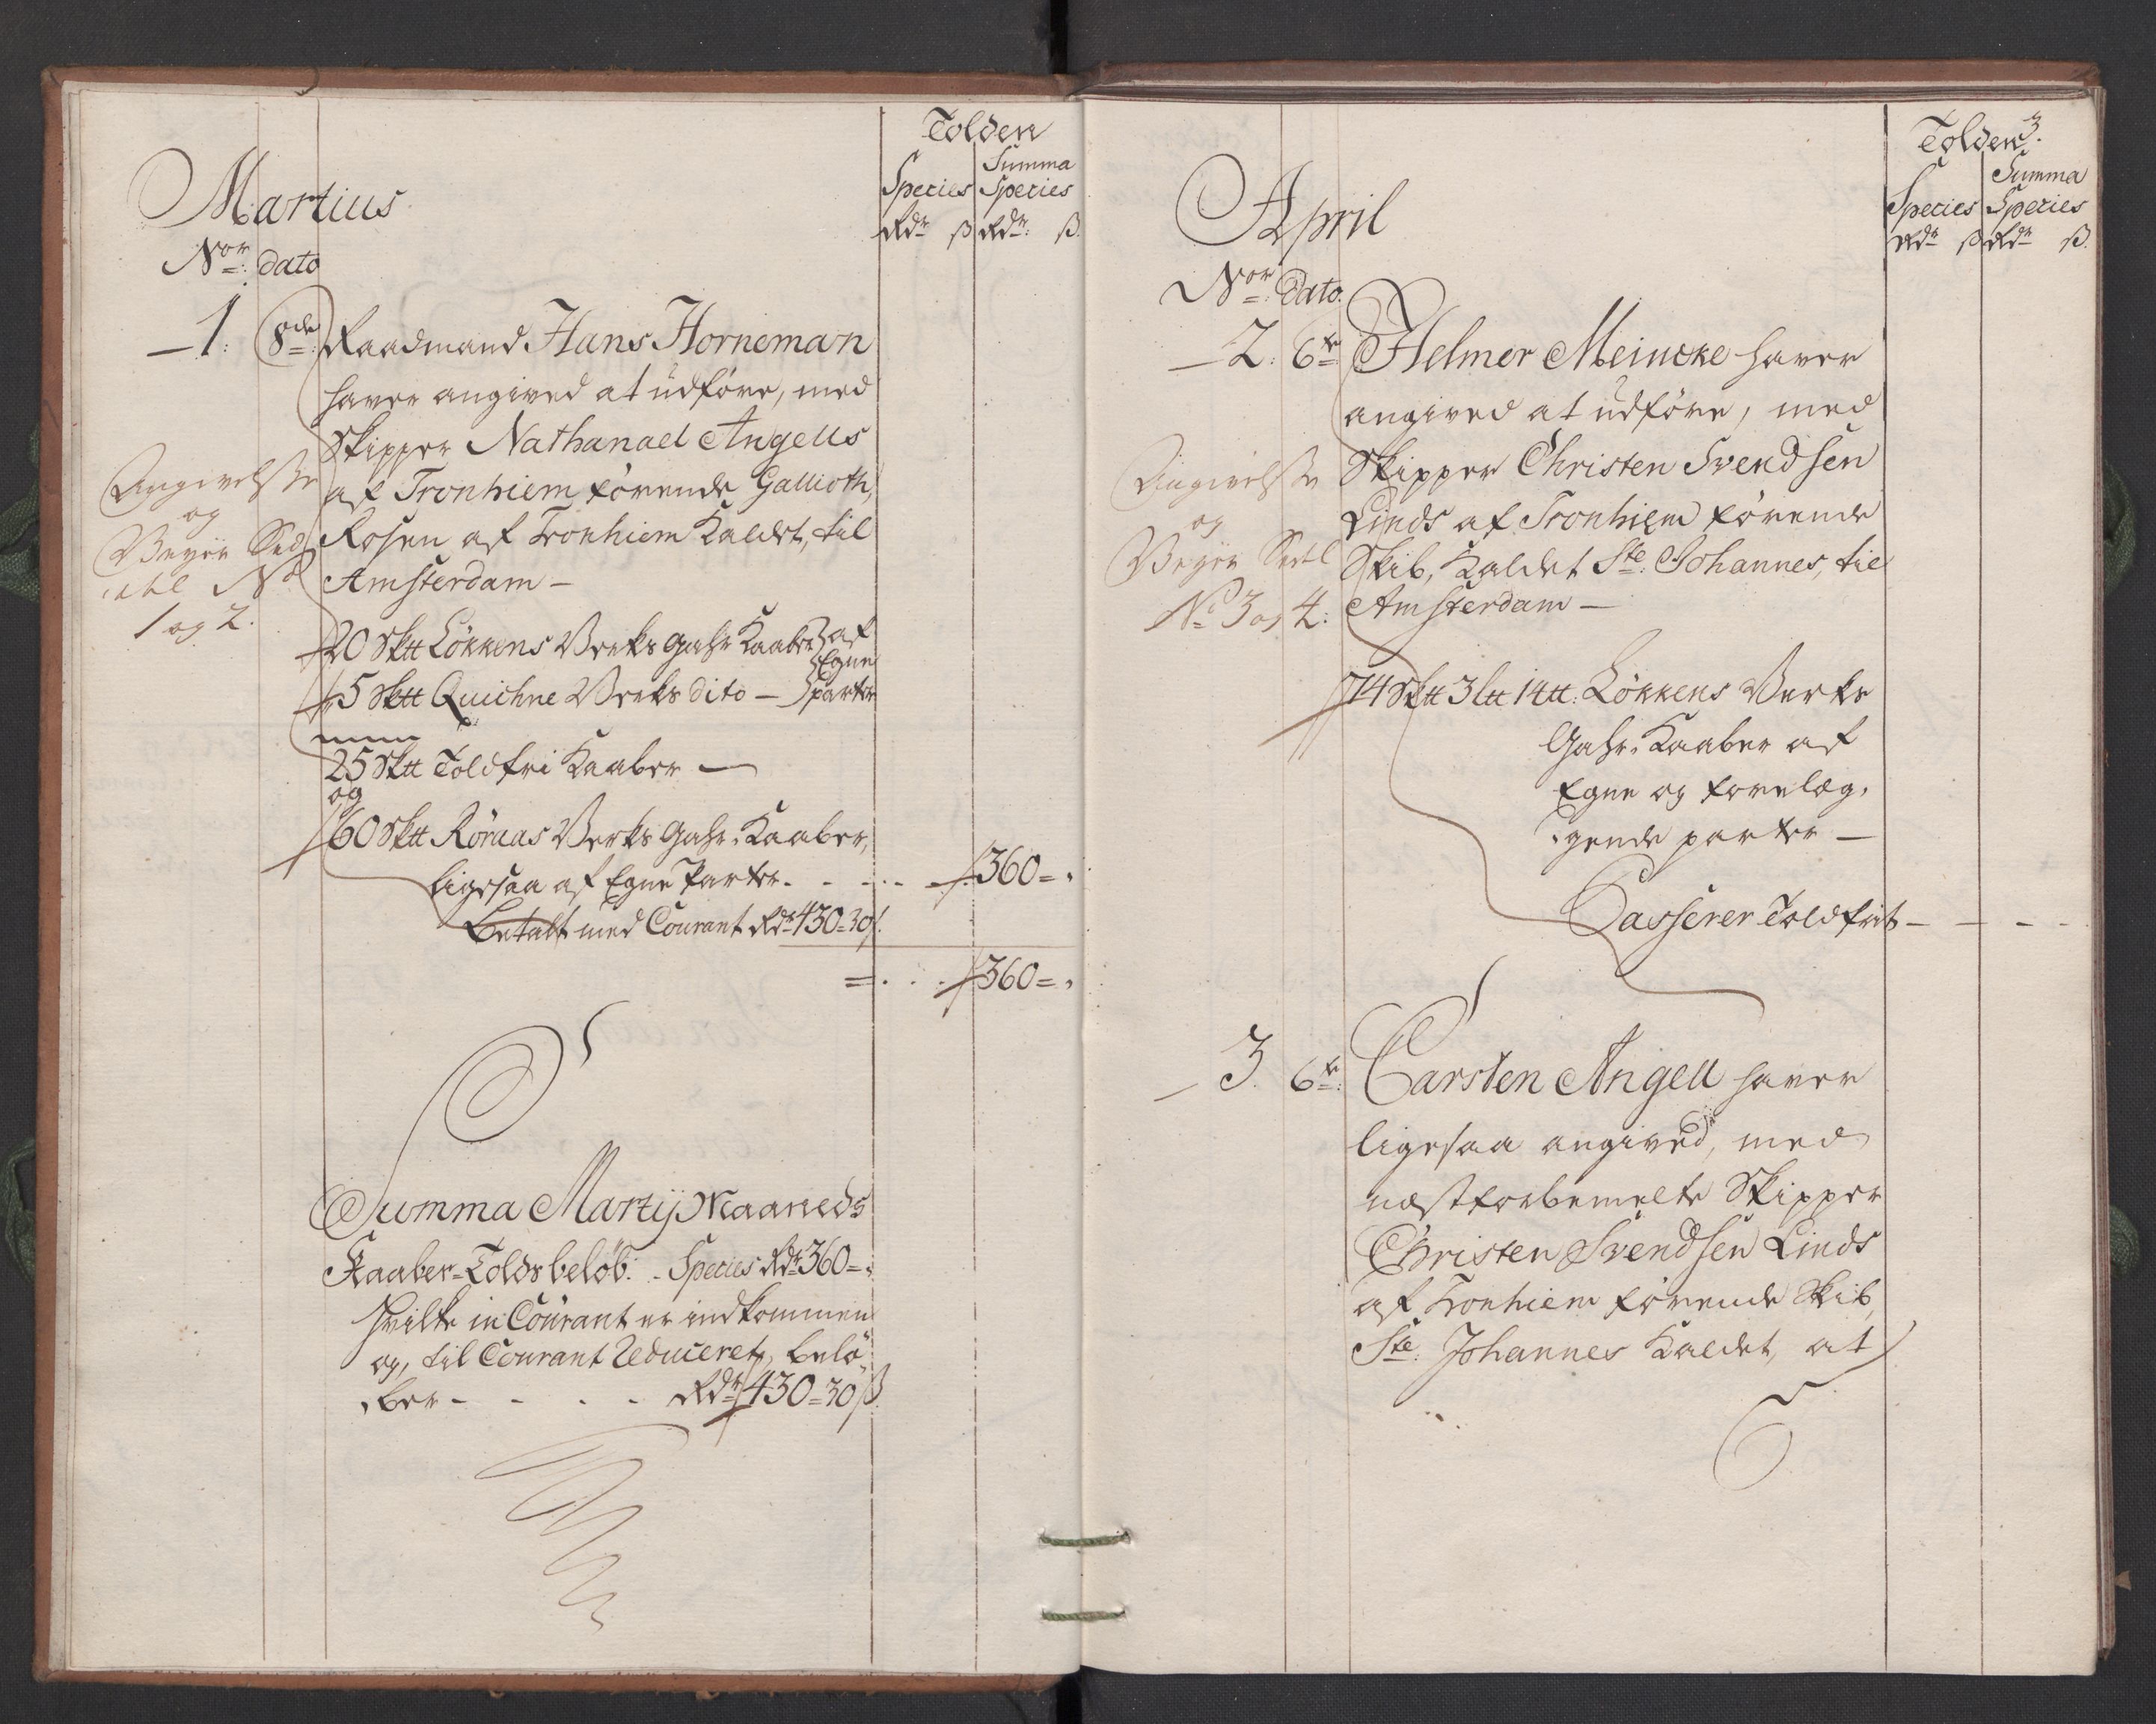 Tolden
Species | Summa Species
Rdr ß | Rdr: ß.
Martius
Nor: dato
1: 8de: Raadmand Hans Horneman
haver angived at udföre, med
Skipper Nathanael Angells
af Tronhiem förende Gallioth,
Rosen af Tronhiem kaldet, til
Amsterdam –
Angivelsse
og
Veyer Sed
No
1 og 2.
20 Sktt Lökkens Verks gahr Kaaber af
Egne
5 Sktt Quichne Verks dito – parter
25 Sktt Toldfri Kaaber –
og
60 Sktt Röraas Verks gahr Kaaber,
ligesaa af Egne Parter. - - - 360 = ,
Betalt med Courant Rdr 430 = 30 ß.
= . . . 360 = ,
Summa Martij Maaneds
Kaaber-Tolds belöb: - Species Rdr 360 = ,
Hvilke in Courant er indkommen
og, til Courant Reduceret, belö-
ber - - - - Rdr 430 = 30 ß.
3.
Tolden
Species | Summa Species
Rdr ß | Rdr ß.
April
Nor: dato.
2: 6te Helmer Meincke haver
angived at udföre, med
Skipper Christen Svendsen
Linds af Tronhiem förende
Skib, kaldet Ste: Johannes, til
Amsterdam –
Angivelsse
og
Veyer Sedl
No 3 og 4:
74 Sktt 3 Ltt 14 tt: Lökkens Verks
Gahr-Kaaber af
Egne og forelæg-
gende parter –
Passerer Toldfrit – – – –
3. 6te: Carsten Angell haver
ligesaa angived, med
næstforbemelte Skipper
Christen Svendsen Linds
af Tronhiem förende Skib,
Ste: Johannes kaldet, at